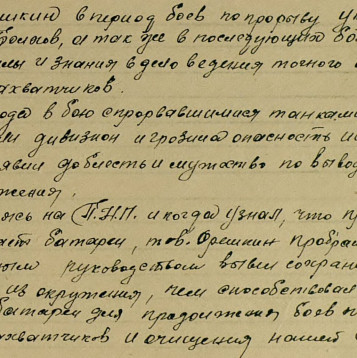 шкин в период боев по прорыву ук
а так же в последующих бо
лы и знания в дело ведения точного о
ахватчиков.
ода в бою с прорвавшимися танками
дивизион и грозила опасность
явил доблесть и мужество по вывод
жения.
ясь на (П.Н.П. и когда) узнал, что пр
батареи, тов. Орешкин пробрал
ным руководством вывел сохран
из окружения, чем способствовал
батареи для продолжения боев п
ахватчиков и очищения нашей